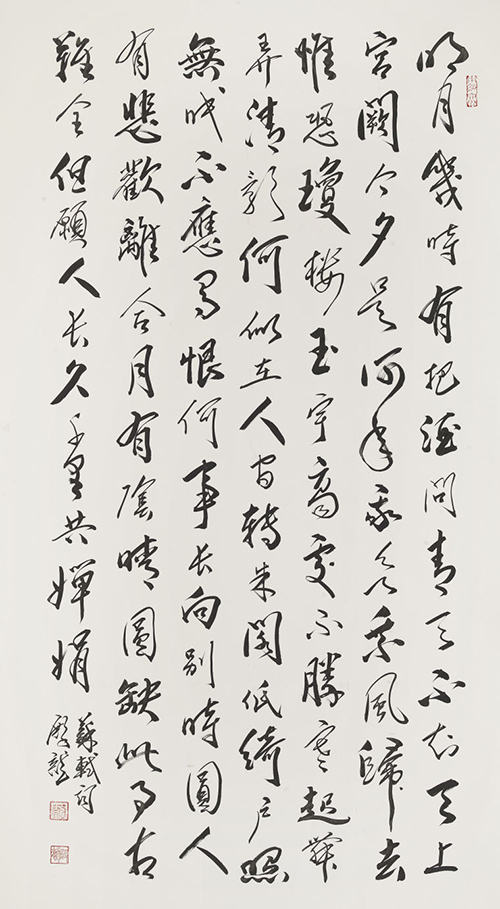 明月幾時有把酒問青天不知天上
宮闕今夕是何年我欲乘風歸去
惟恐瓊樓玉宇高處不勝寒起舞
弄清影何似在人間轉朱閣低綺户照
無眠不應有恨何事長向別時圓人
有悲歡離合月有陰晴圓缺此事古
難全但願人長久千里共嬋娟
蘇軾詞